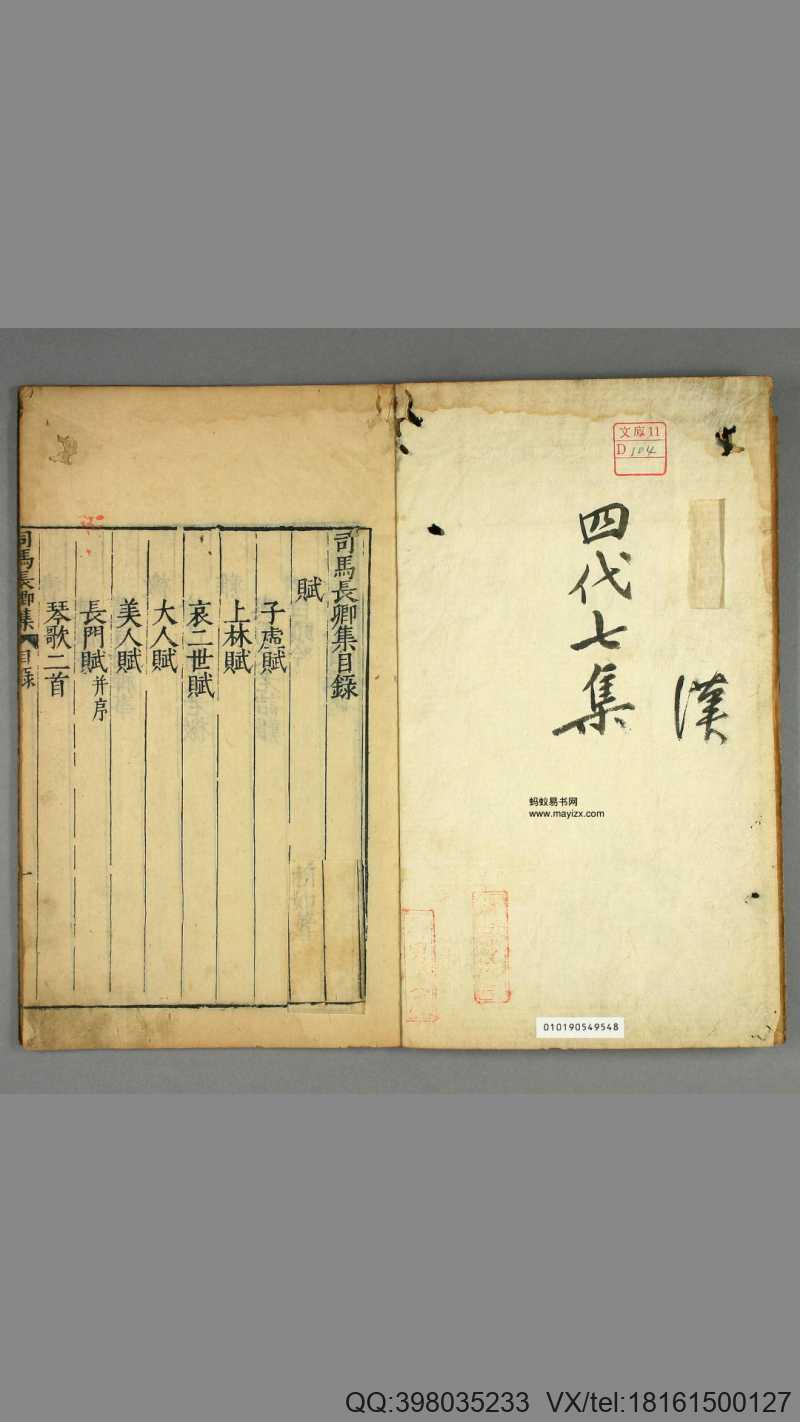 文庫11
D 104
漢
四代七集
蚂蚁易书网
www.mayizx.com
010190549548
司馬長卿集目錄
賦
子虛賦
上林賦
哀二世賦
大人賦
美人賦
長門賦并序
琴歌二首
司馬長卿集 目錄
QQ:398035233 VX/tel:18161500127